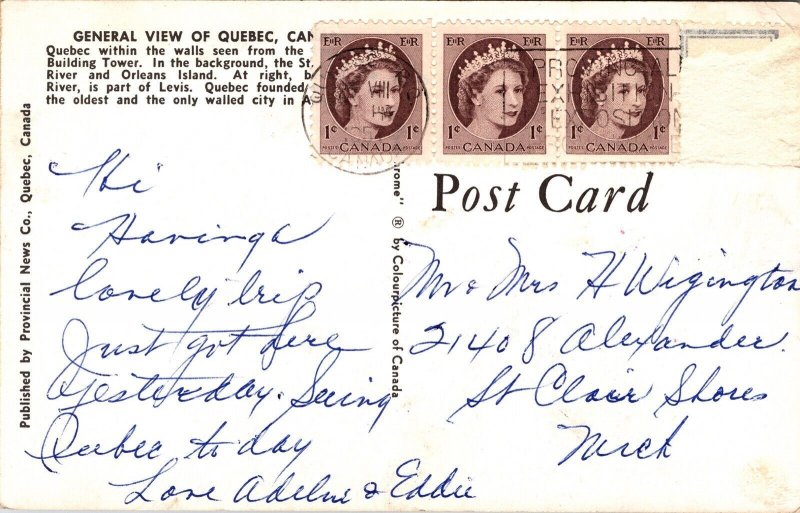 GENERAL VIEW OF QUEBEC, CAN
Quebec within the walls seen from the
Building Tower. In the background, the St.
River and Orleans Island. At right, b
River, is part of Levis. Quebec founded
the oldest and the only walled city in A
Published by Provincial News Co., Quebec, Canada
EIIR EIIR
1¢ 1¢
POSTES CANADA POSTAGE
EIIR EIIR
1¢ 1¢
POSTES CANADA POSTAGE
EIIR EIIR
1¢ 1¢
POSTES CANADA POSTAGE
VIII
CANADA
PROVINCIAL
EXPOSITION
rome" ® by Colourpicture of Canada
Post Card
Hi
Having a
lovely trip
Just got here
Yesterday. Seeing
Quebec to day
Love Adeline & Eddie
Mr & Mrs H Wigington
21408 Alexander.
St Clair Shores
Mich